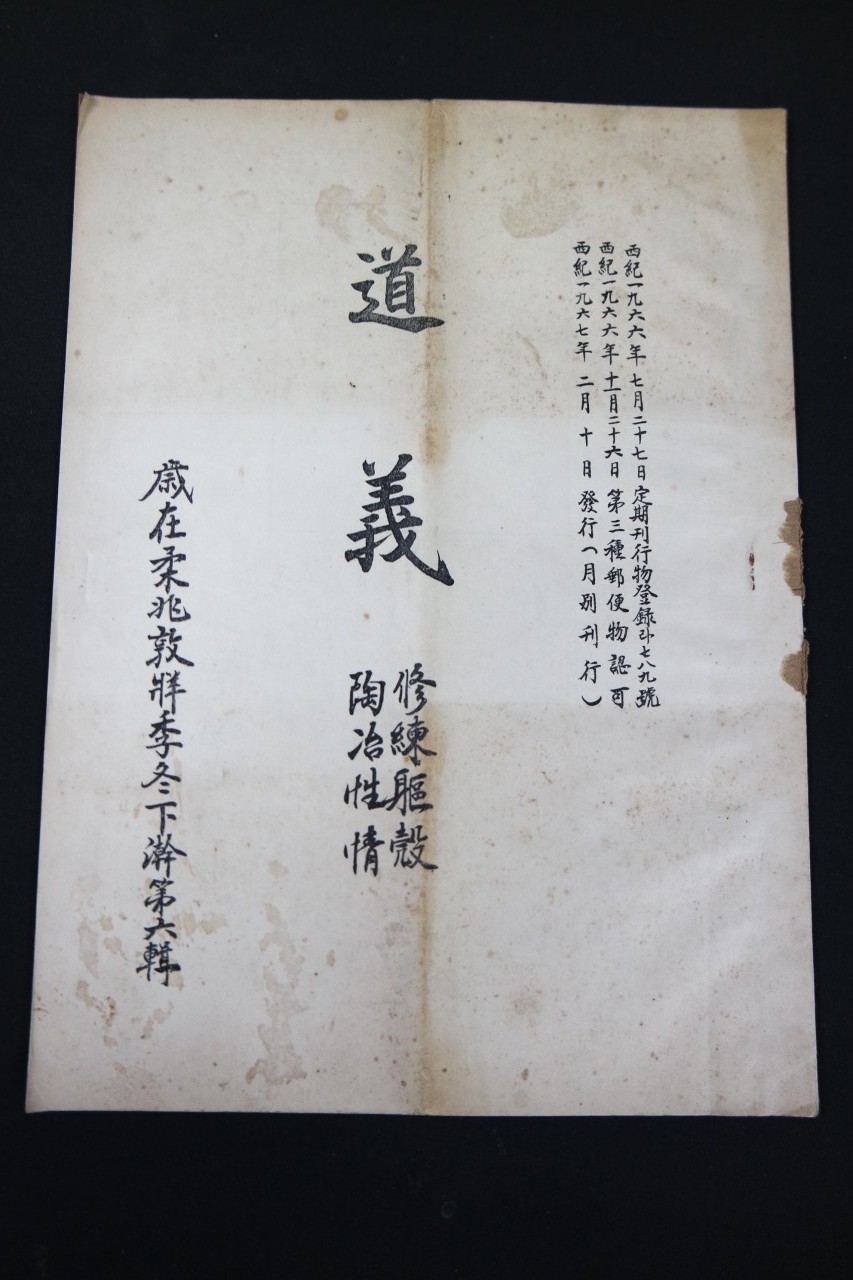 西紀一九六六年 七月二十七日 定期刊行物登錄라七八九號
西紀一九六六年 十一月二十六日 第三種郵便物認可
西紀一九六七年 二月十日 發行（月別刊行）
道義
修練軀殼
陶冶性情
歲在柔兆敦牂季冬下澣第六輯